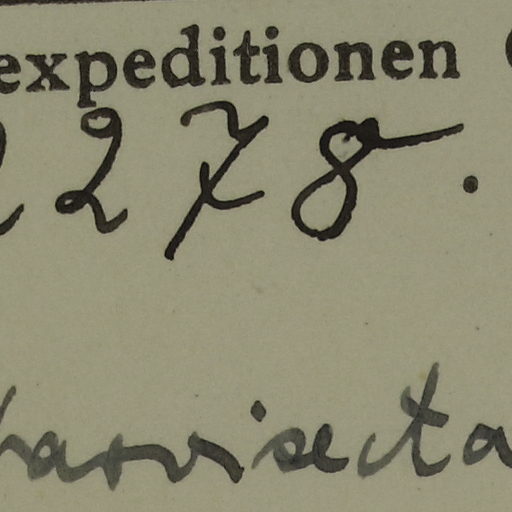 expeditionen
2278.
parvisecta